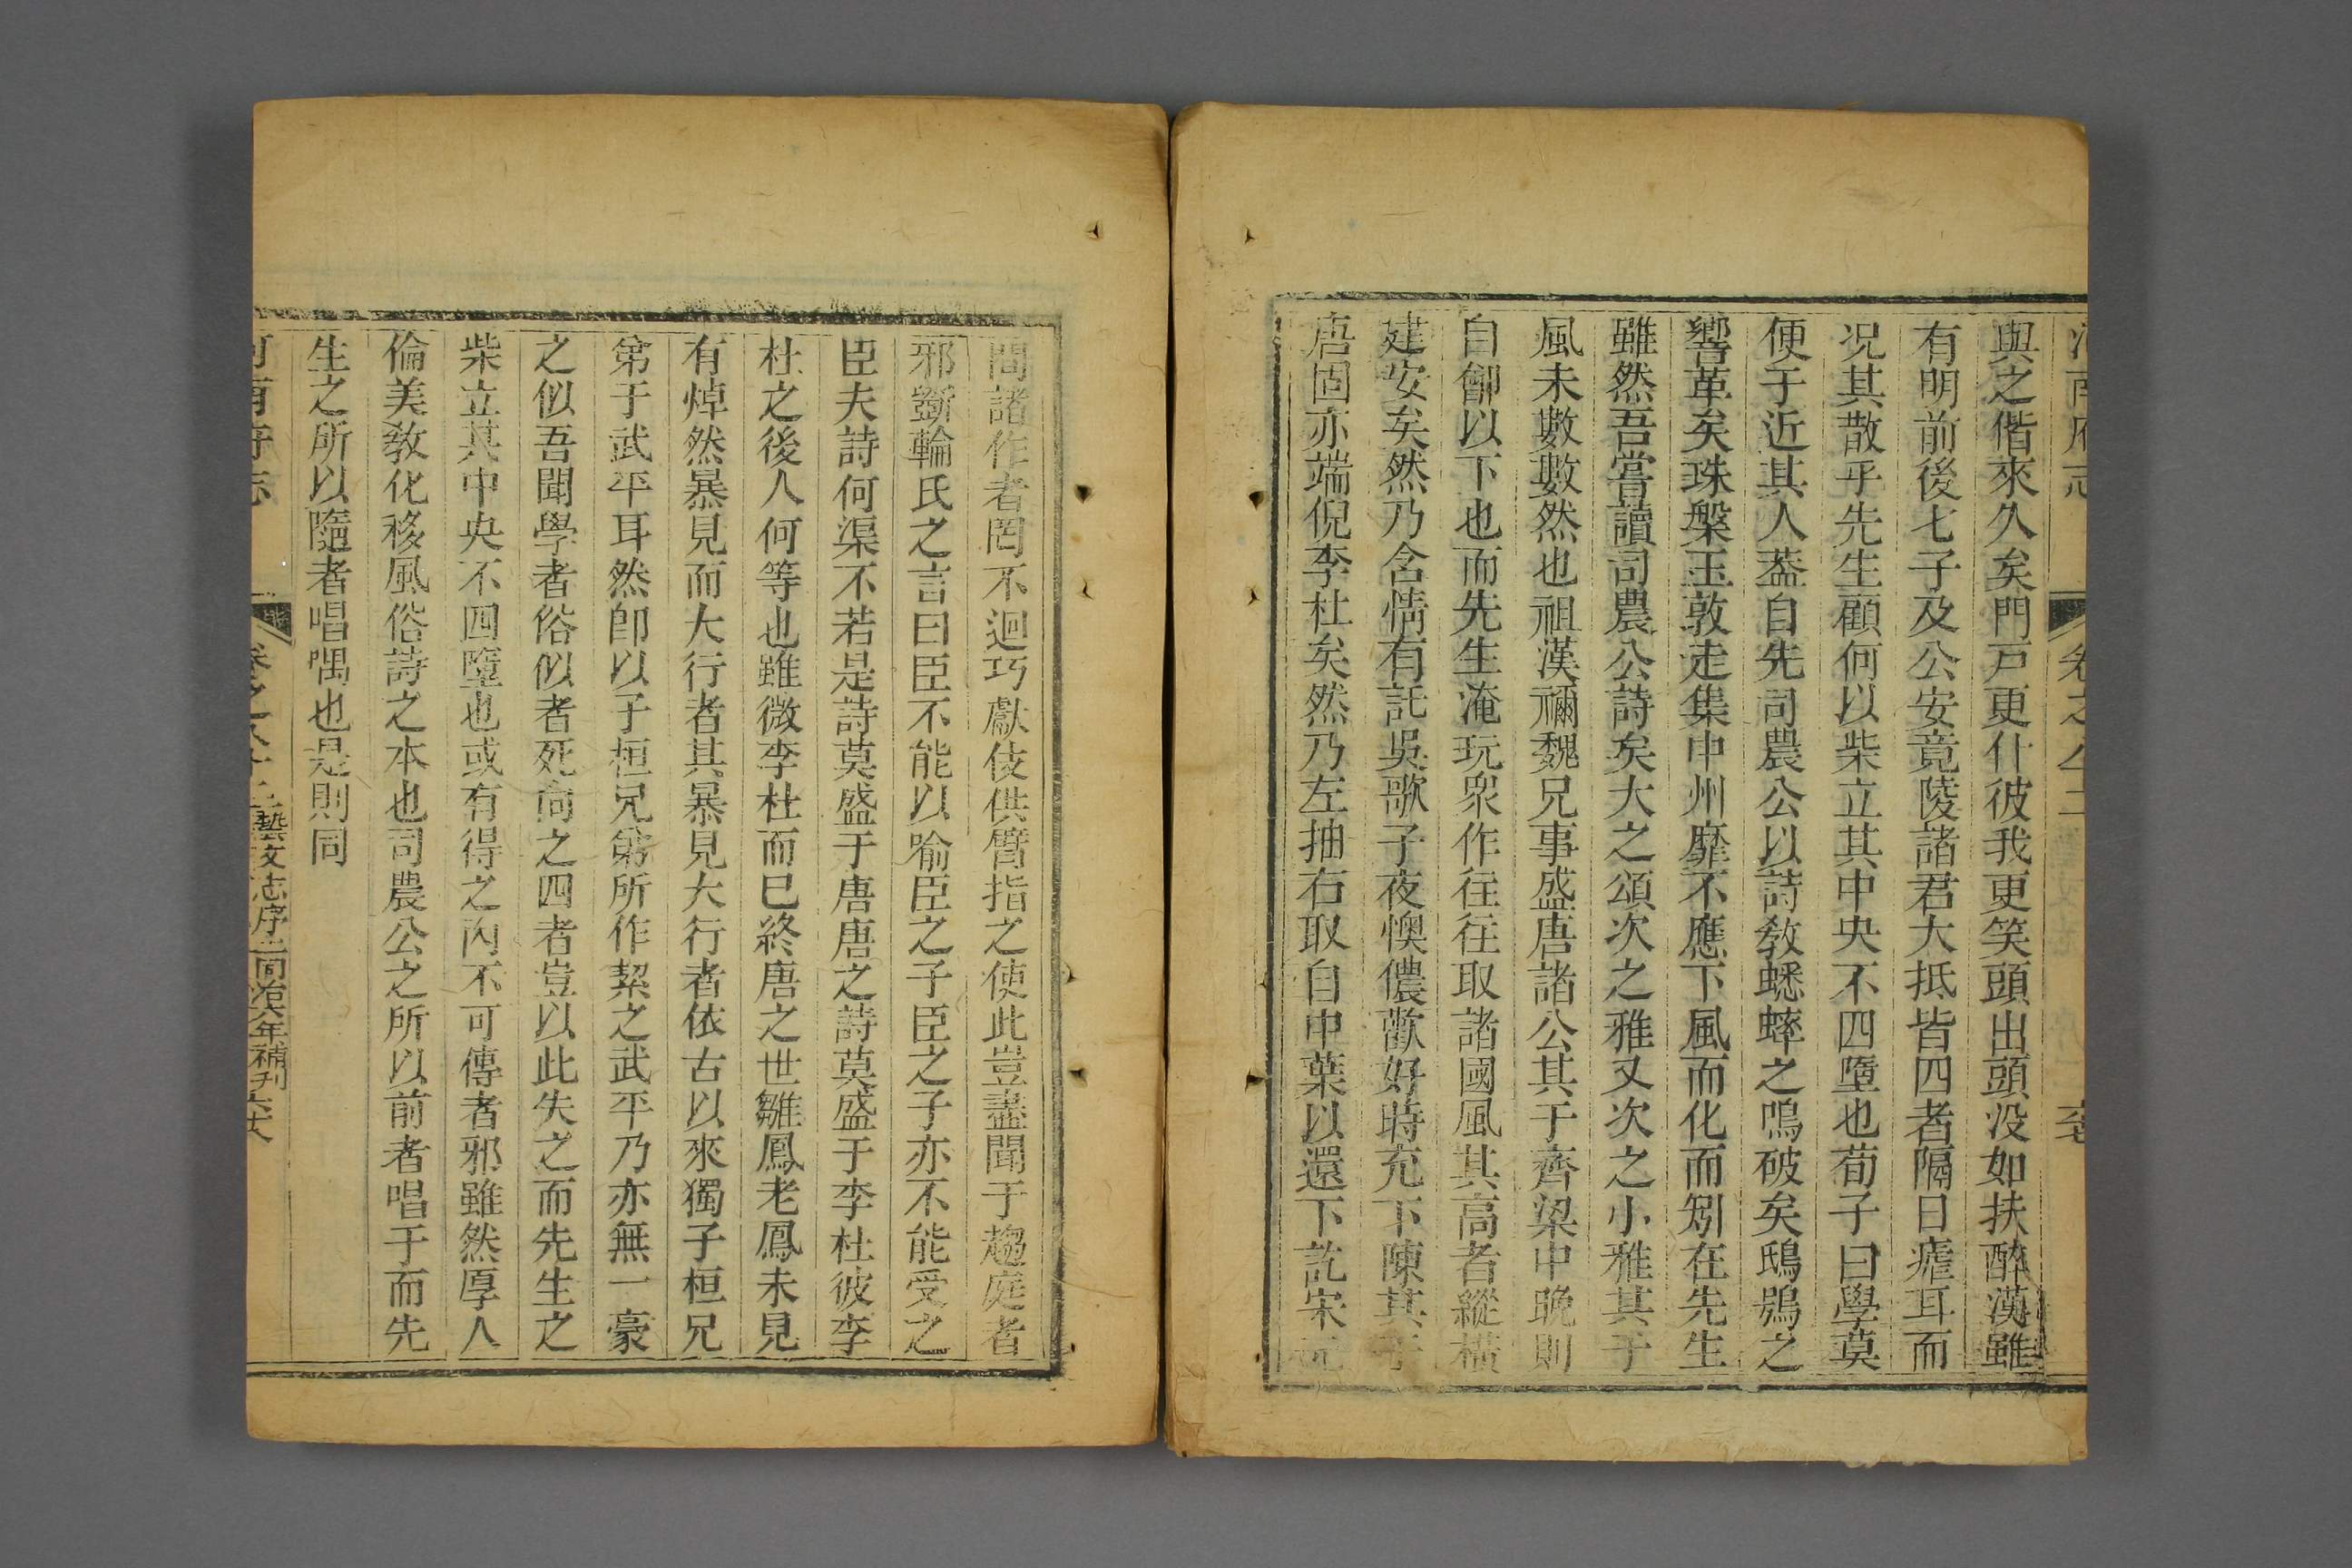 河南府志　卷之八十二
與之偕來久矣門戸更什彼我更笑頭出頭没如扶醉漢雖
有明前後七子及公安竟陵諸君大抵皆四者隔日瘧耳而
况其散乎先生顧何以柴立其中央不四墮也荀子曰學莫
便于近其人葢自先司農公以詩敎蟋蟀之鳴破矣鴟鴞之
響革矣珠槃玉敦走集中州靡不應下風而化而矧在先生
雖然吾嘗讀司農公詩矣大之頌次之雅又次之小雅其于
風未數數然也祖漢禰魏兄事盛唐諸公其于齊梁中晚則
自鄶以下也而先生淹玩衆作往往取諸國風其高者縱橫
建安矣然乃含情有託吳歌子夜懊儂歡好時充下陳其于
唐固亦端倪李杜矣然乃左抽右取自中葉以還下訖宋元
間諸作者罔不迴巧獻伎供臂指之使此豈盡聞于趨庭者
邪斵輪氏之言曰臣不能以喻臣之子臣之子亦不能受之
臣夫詩何渠不若是詩莫盛于唐唐之詩莫盛于李杜彼李
杜之後人何等也雖微李杜而已終唐之世雛鳳老鳳未見
有焯然暴見而大行者其暴見大行者依古以來獨子桓兄
弟于武平耳然卽以子桓兄弟所作絜之武平乃亦無一豪
之似吾聞學者俗似者死向之四者豈以此失之而先生之
柴立其中央不四墮也或有得之內不可傳者邪雖然厚人
倫美敎化移風俗詩之本也司農公之所以前者唱于而先
生之所以隨者唱喁也是則同
河南府志　卷之八十二　藝文志序二同治六年補刋　六大